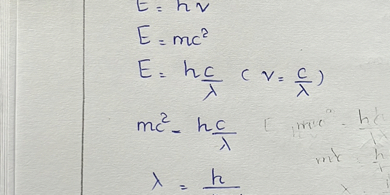 E = hν
E = mc²
E = h c/λ ( ν = c/λ )
mc² = h c/λ
λ = h